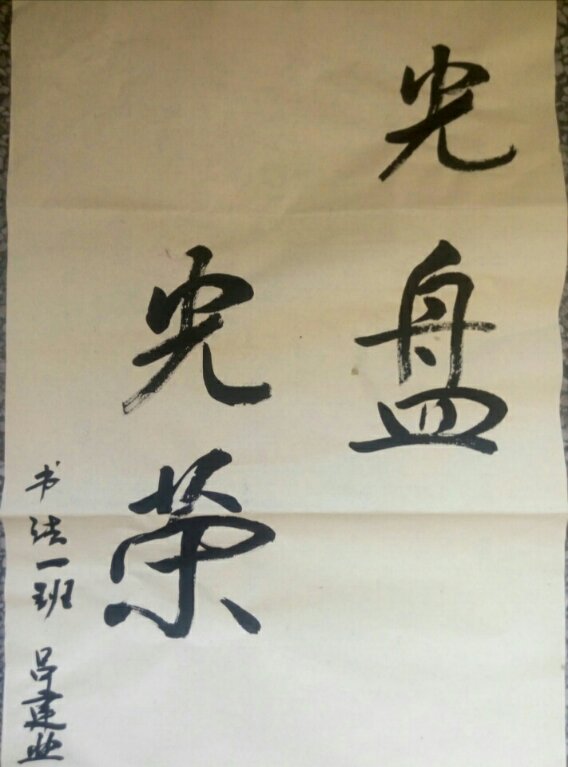 光盘
光荣
书法一班 吕建业